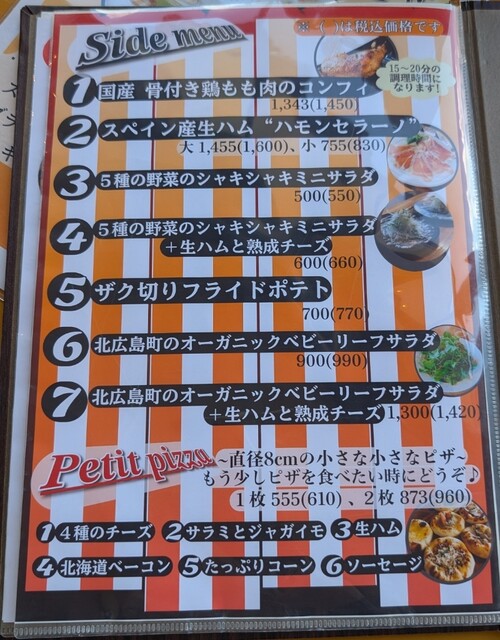 Side menu
※( )は税込価格です
1 国産 骨付き鶏もも肉のコンフィ
1,343(1,450)
15〜20分の
調理時間に
なります!
2 スペイン産生ハム “ハモンセラーノ”
大 1,455(1,600)、小 755(830)
3 5種の野菜のシャキシャキミニサラダ
500(550)
4 5種の野菜のシャキシャキミニサラダ
+生ハムと熟成チーズ
600(660)
5 ザク切りフライドポテト
700(770)
6 北広島町のオーガニックベビーリーフサラダ
900(990)
7 北広島町のオーガニックベビーリーフサラダ
+生ハムと熟成チーズ 1,300(1,420)
Petit pizza
~直径8cmの小さな小さなピザ~
もう少しピザを食べたい時にどうぞ♪
1枚 555(610)、2枚 873(960)
1 4種のチーズ 2 サラミとジャガイモ 3 生ハム
4 北海道ベーコン 5 たっぷりコーン 6 ソーセージ